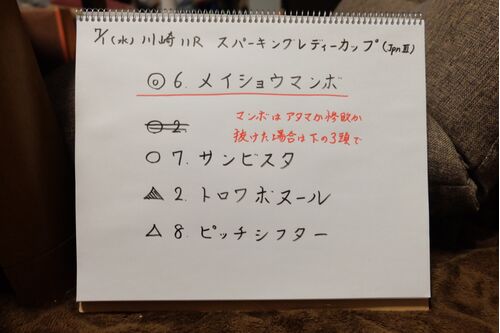 7/1(水) 川崎11R スパーキングレディーカップ(JpnⅢ)
◎ 6. メイショウマンボ
○ 2.
マンボはアタマか惨敗か
抜けた場合は下の3頭で
○ 7. サンビスタ
▲ 2. トロワボヌール
△ 8. ピッチシフター